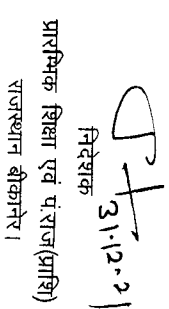 31.12.21
निदेशक
प्रारम्भिक शिक्षा एवं पं.राज(प्राशि)
राजस्थान बीकानेर।